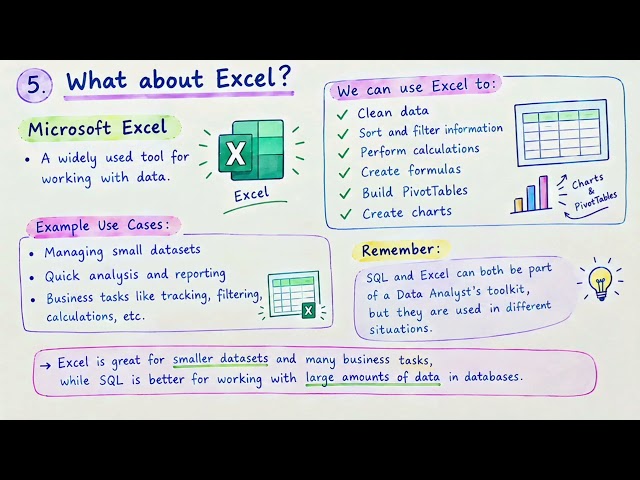 5. What about Excel?
Microsoft Excel
• A widely used tool for
working with data.
X
Excel
We can use Excel to:
✓ Clean data
✓ Sort and filter information
✓ Perform calculations
✓ Create formulas
✓ Build PivotTables
✓ Create charts
Charts
&
PivotTables
Example Use Cases:
• Managing small datasets
• Quick analysis and reporting
• Business tasks like tracking, filtering,
calculations, etc.
X
Remember:
SQL and Excel can both be part
of a Data Analyst's toolkit,
but they are used in different
situations.
→ Excel is great for smaller datasets and many business tasks,
while SQL is better for working with large amounts of data in databases.